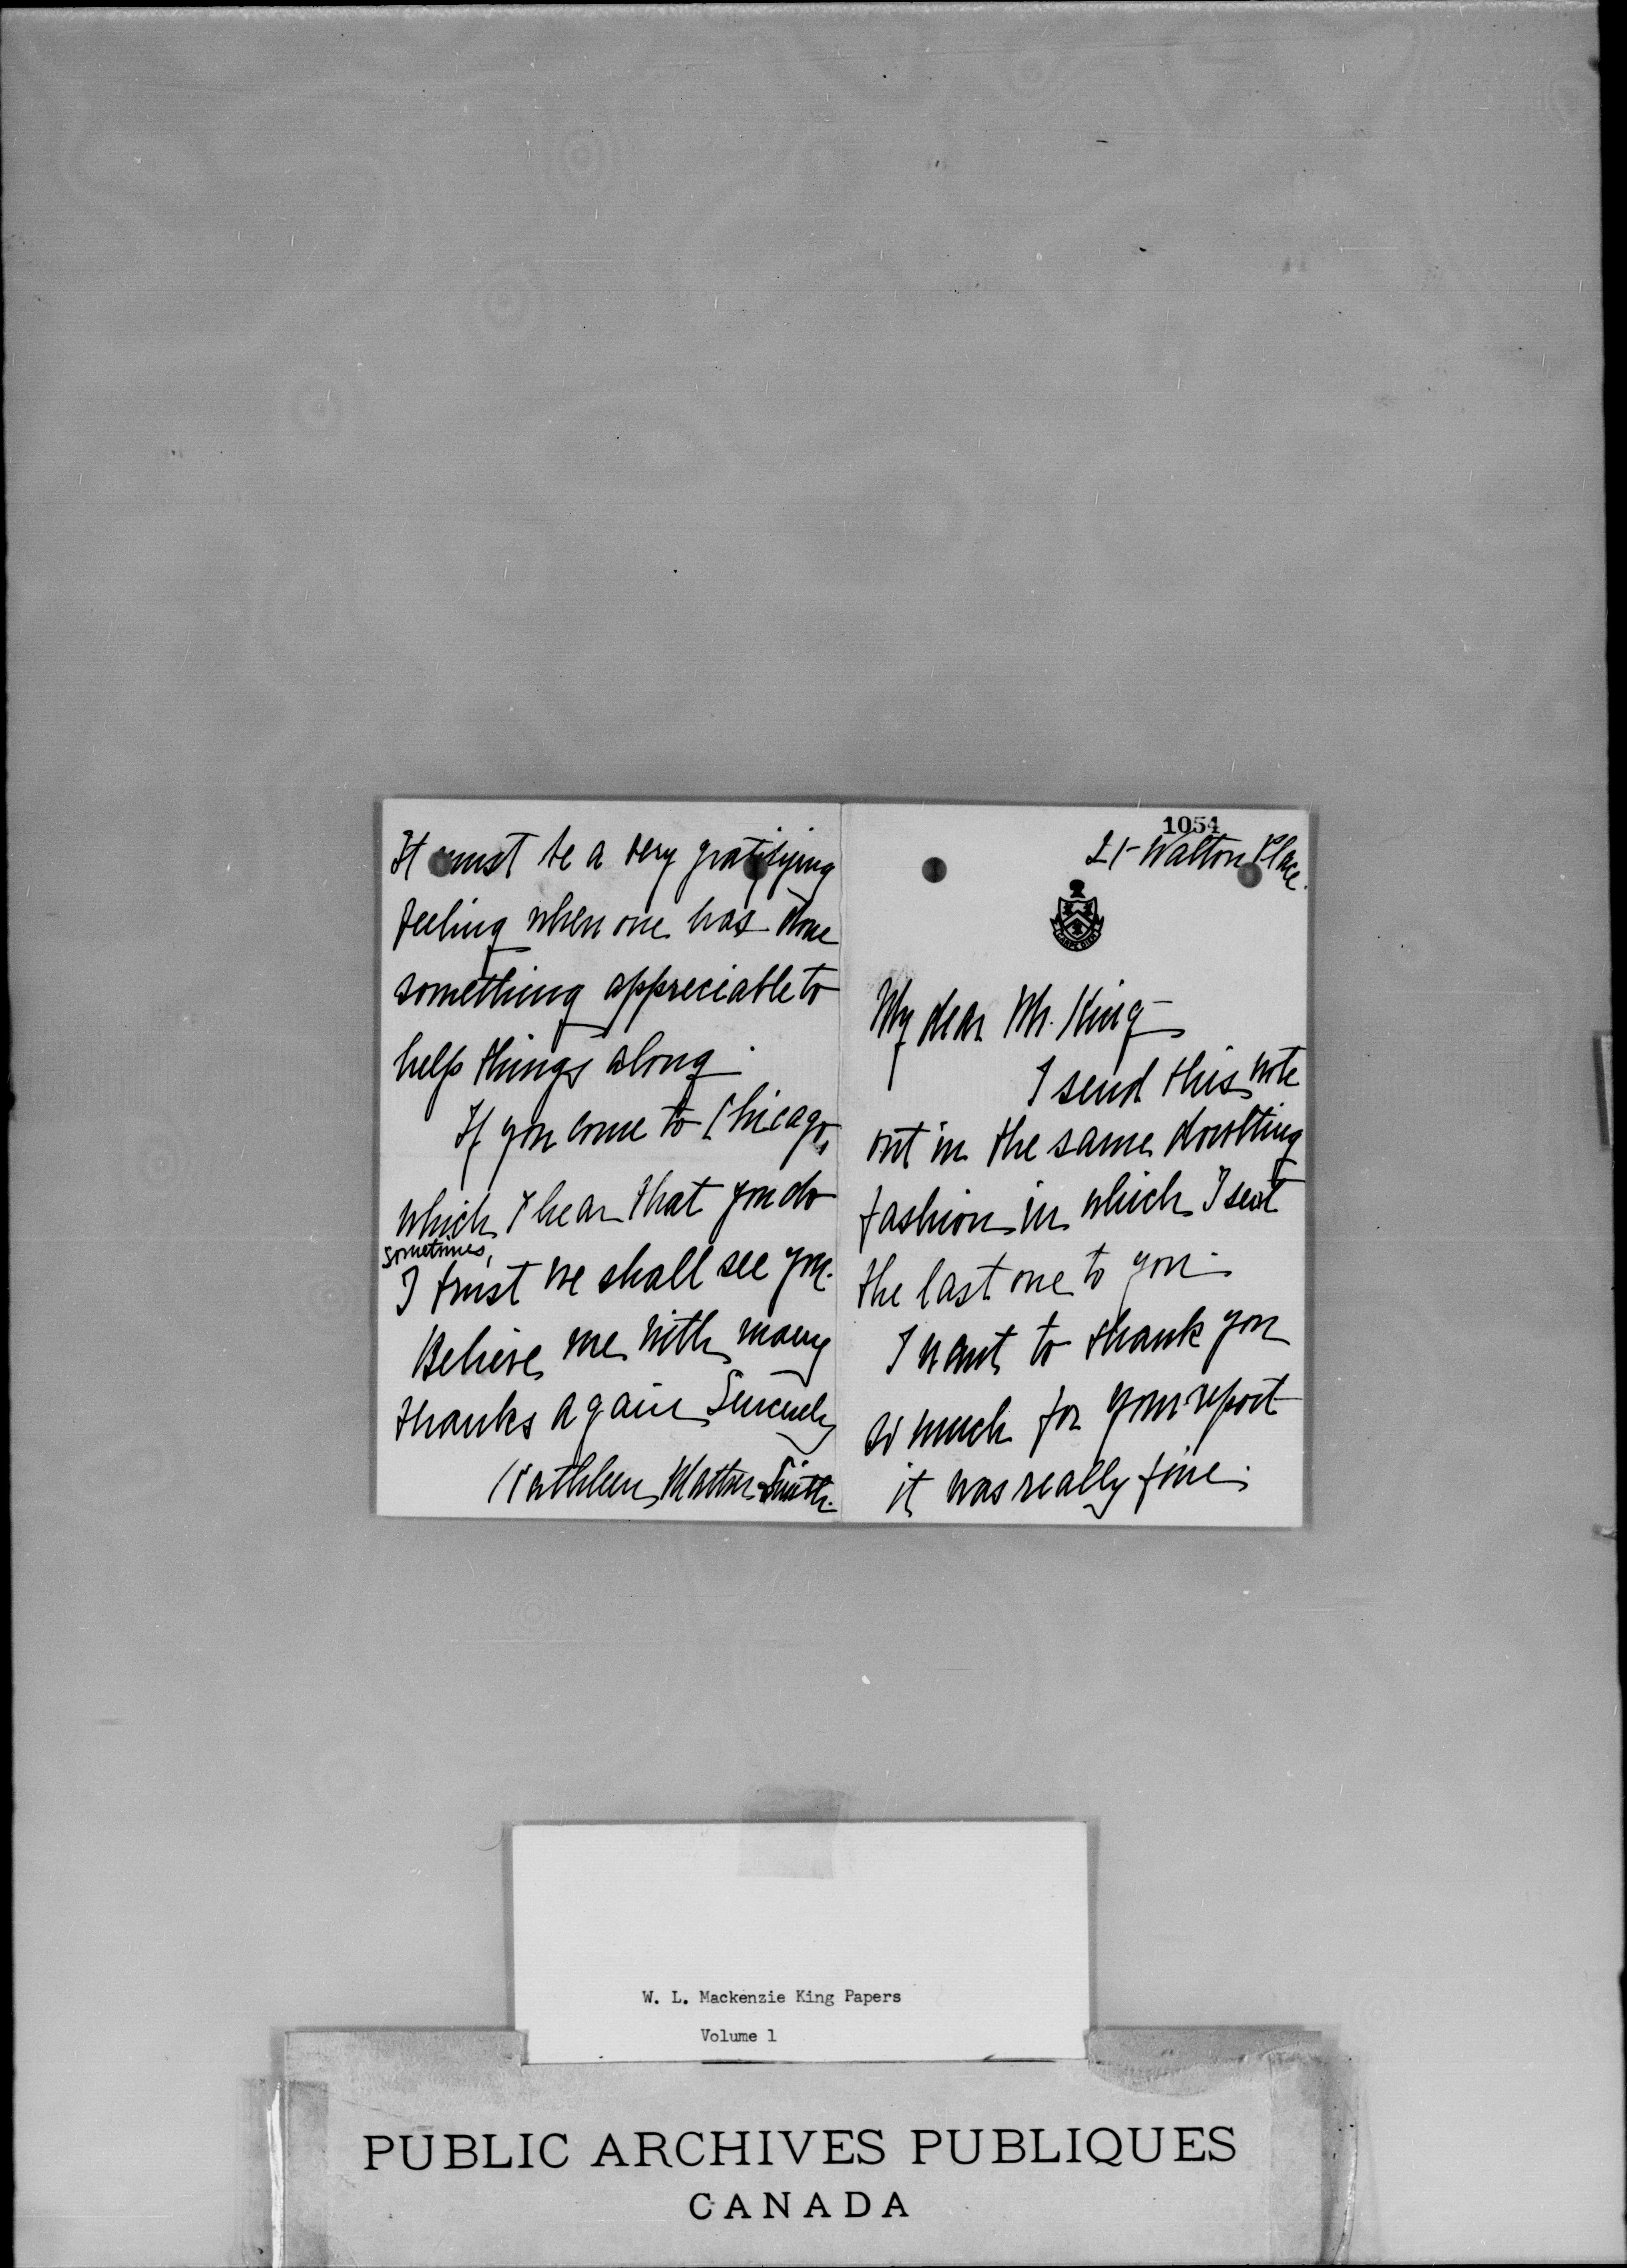 1054
21 Walton Place.
CARPE DIEM
My dear Mr. King—
I send this note
out in the same doubting
fashion in which I sent
the last one to you.
I want to thank you
so much for your report
it was really fine.
It must be a very gratifying
feeling when one has done
something appreciable to
help things along.
If you come to Chicago,
which I hear that you do
sometimes,
I trust we shall see you.
Believe me with many
thanks again Sincerely
Kathleen Mather Smith.
W. L. Mackenzie King Papers
Volume 1
PUBLIC ARCHIVES PUBLIQUES
CANADA